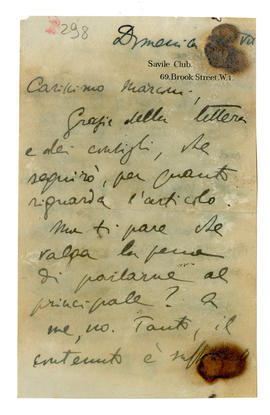 298
Domenica
Savile Club.
69, Brook Street, W.1.
Carissimo Marconi,
Grazie della lettera
e dei consigli, che
seguirò, per quanto
riguarda l'articolo.
Ma ti pare che
valga la pena
di parlarne al
principale? A
me, no. Tanto, il
contenuto è